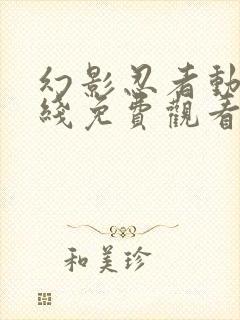 幻影忍者動
綫免費觀看
和美珍